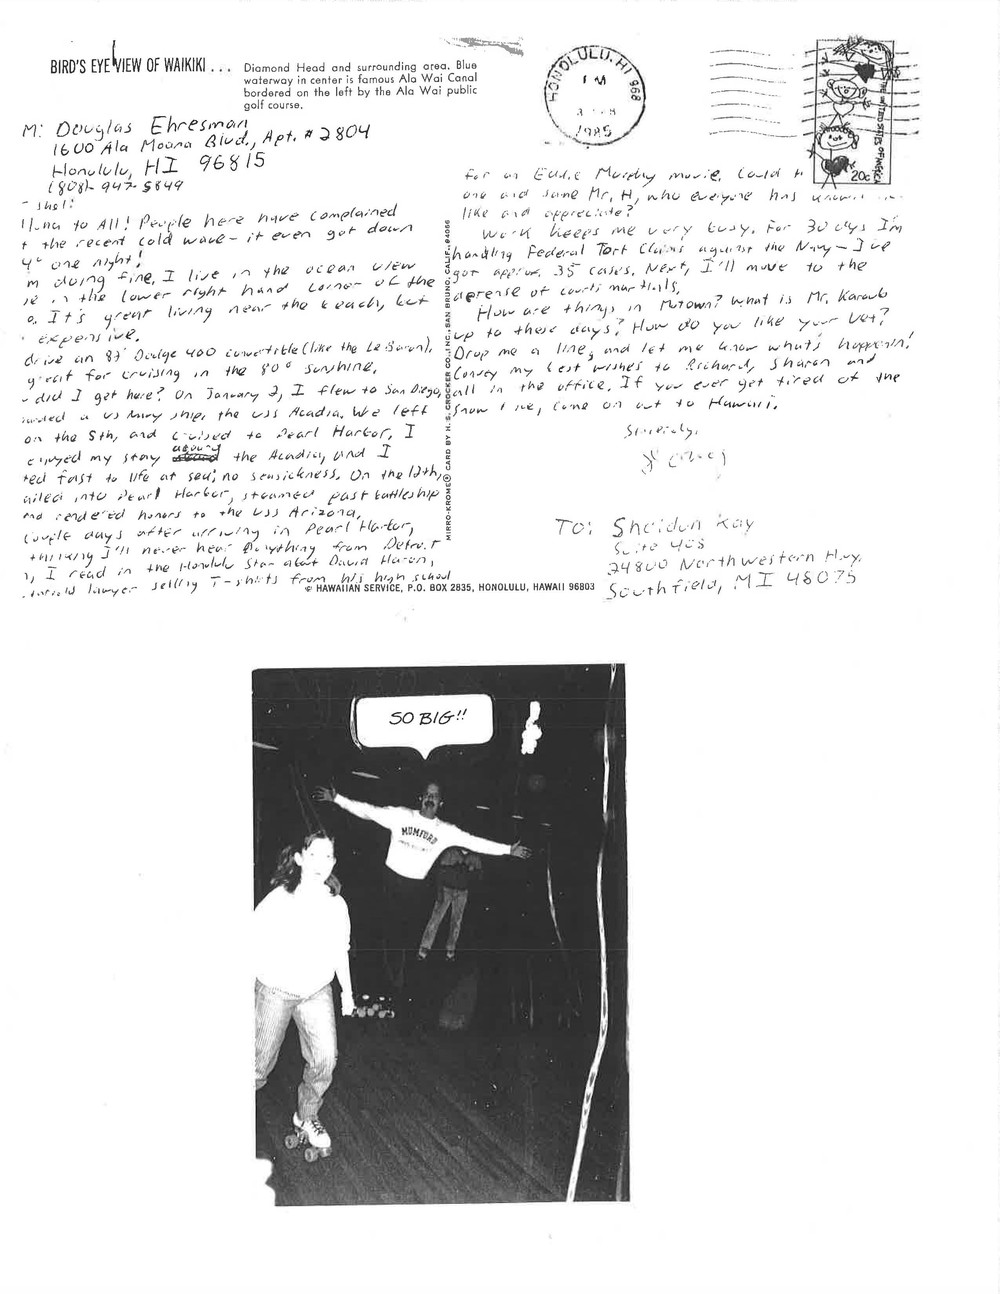 BIRD'S EYE VIEW OF WAIKIKI . . .
Diamond Head and surrounding area. Blue
waterway in center is famous Ala Wai Canal
bordered on the left by the Ala Wai public
golf course.
HONOLULU, HI 968
PM
1985
THE UNITED STATES OF AMERICA
20c
M: Douglas Ehresman
1600 Ala Moana Blvd., Apt. # 2804
Honolulu, HI 96815
(808)-947-5849
to All! People here have complained
the recent cold wave - it even got down
4° one night!
m doing fine. I live in the ocean view
in the lower right hand corner of the
o. It's great living near the beach, but
expensive.
drive an 83' Dodge 400 convertible (like the Le Baron),
great for cruising in the 80° sunshine.
did I get here? On January 2, I flew to San Diego,
a US Navy ship, the USS Acadia. We left
on the 5th, and cruised to Pearl Harbor. I
enjoyed my stay aboard the Acadia, and I
ted fast to life at sea; no seasickness. On the 12th,
ailed into Pearl Harbor, steamed past battleship
and rendered honors to the USS Arizona.
Couple days after arriving in Pearl Harbor,
thinking I'll never hear anything from Detroit
I read in the Honolulu Star about David Haron,
lawyer selling T-shirts from his high school
for an Eddie Murphy movie. Could
one and same Mr. H, who everyone has known
like and appreciate?
Work keeps me very busy. For 30 days I'm
handling Federal Tort Claims against the Navy - I've
got approx. 35 cases. Next, I'll move to the
defense of courts martials.
How are things in Motown? What is Mr. Karaub
up to these days? How do you like your Vet?
Drop me a line, and let me know what's happenin!
Convey my best wishes to Richard, Sharon and
all in the office. If you ever get tired of the
snow, come on out to Hawaii.
Sincerely,
TO: Sheldon Kay
Suite 408
24800 Northwestern Hwy.
Southfield, MI 48075
MIRRO-KROME® CARD BY H. S. CROCKER CO., INC., SAN BRUNO, CALIF., 94066
© HAWAIIAN SERVICE, P.O. BOX 2835, HONOLULU, HAWAII 96803
SO BIG!!
MUMFORD